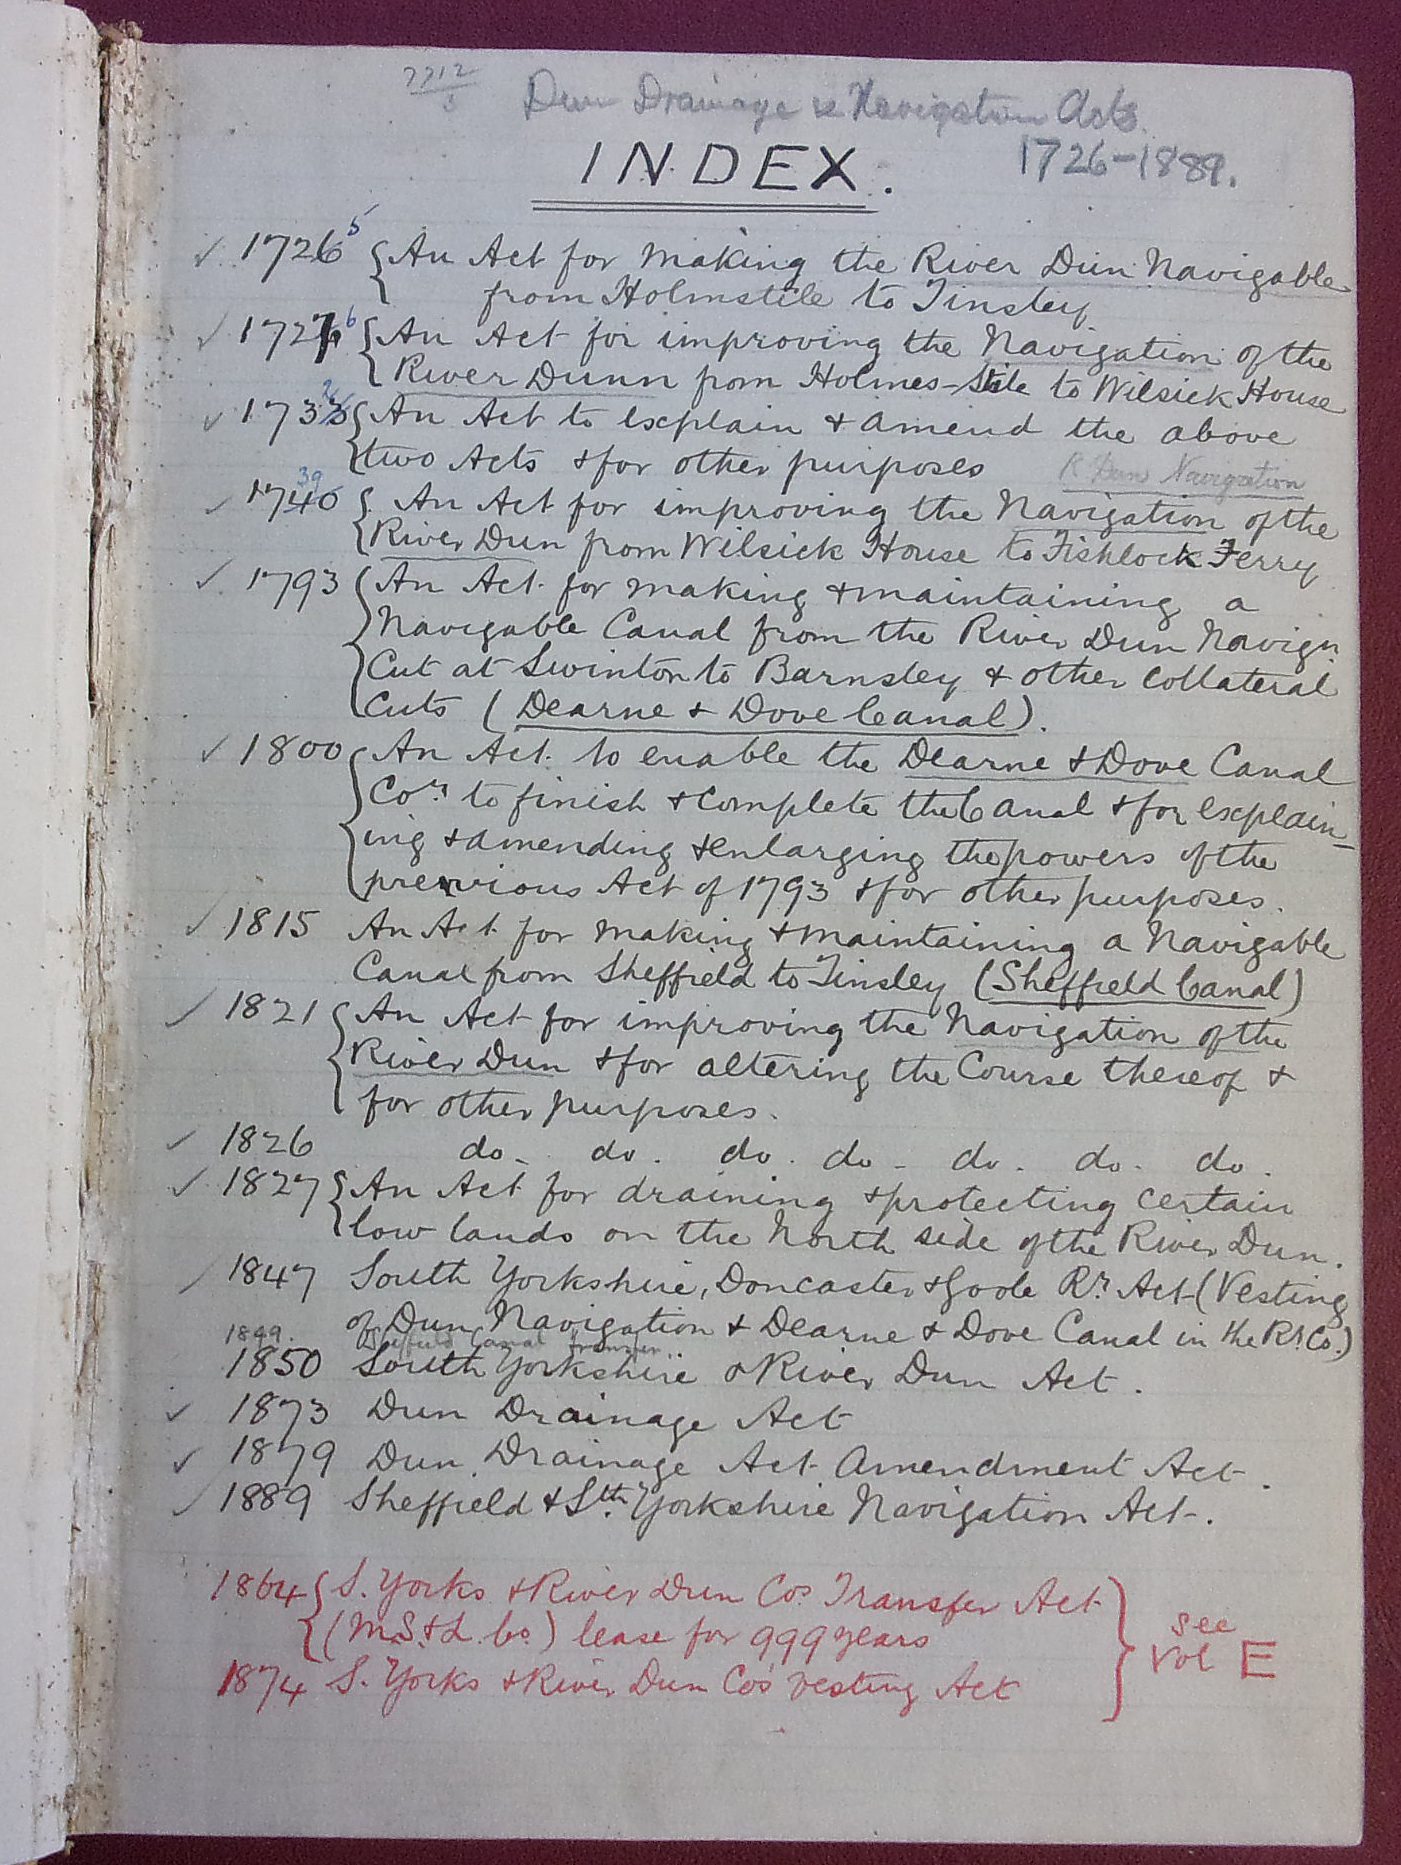 7712
5
Dun Drainage & Navigation Acts.
1726-1889.
INDEX.
1726 5 An Act for making the River Dun Navigable
from Holmstile to Tinsley
1727 6 An Act for improving the Navigation of the
River Dunn from Holmes-Stile to Wilsick House
1733 2 An Act to explain & amend the above
two Acts & for other purposes R Dun Navigation
1740 39 An Act for improving the Navigation of the
River Dun from Wilsick House to Fishlock Ferry
1793 An Act for making & maintaining a
Navigable Canal from the River Dun Navign
Cut at Swinton to Barnsley & other Collateral
Cuts (Dearne & Dove Canal).
1800 An Act to enable the Dearne & Dove Canal
Coy. to finish & complete the Canal & for explain-
ing & amending & enlarging the powers of the
previous Act of 1793 & for other purposes.
1815 An Act for making & maintaining a Navigable
Canal from Sheffield to Tinsley (Sheffield Canal)
1821 An Act for improving the Navigation of the
River Dun & for altering the Course thereof &
for other purposes.
1826 do. do. do. do. do. do. do.
1827 An Act for draining & protecting certain
low lands on the North side of the River Dun.
1847 South Yorkshire, Doncaster & Goole Ry. Act (Vesting
of Dun Navigation & Dearne & Dove Canal in the Ry. Co.)
1849. Sheffield Canal Transfer
1850 South Yorkshire & River Dun Act.
1873 Dun Drainage Act
1879 Dun Drainage Act Amendment Act.
1889 Sheffield & Sth. Yorkshire Navigation Act.
1864 S. Yorks & River Dun Cos Transfer Act
(M.S.& L. Co.) lease for 999 years
see
Vol E
1874 S. Yorks & River Dun Co's Vesting Act